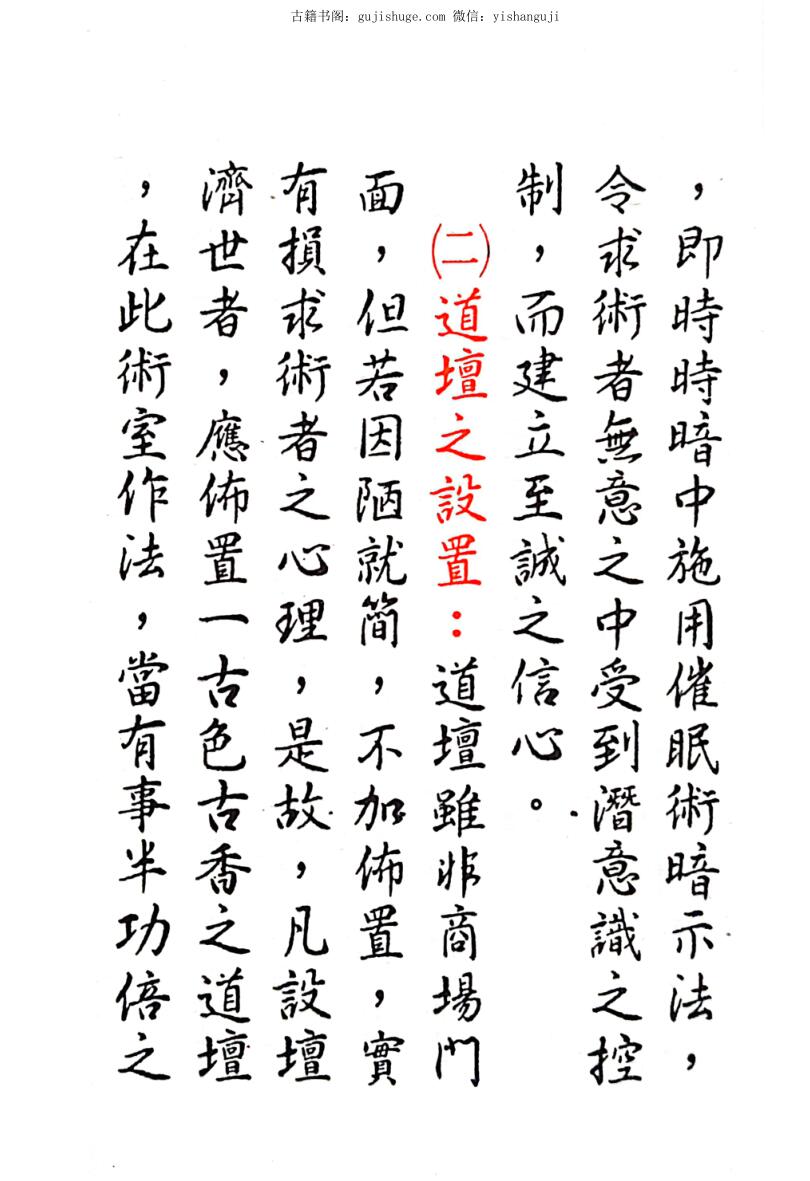 古籍书阁：gujishuge.com 微信：yishanguji
，即時時暗中施用催眠術暗示法，
令求術者無意之中受到潛意識之控
制，而建立至誠之信心。
㈡道壇之設置：道壇雖非商場門
面，但若因陋就簡，不加佈置，實
有損求術者之心理，是故，凡設壇
濟世者，應佈置一古色古香之道壇
，在此術室作法，當有事半功倍之